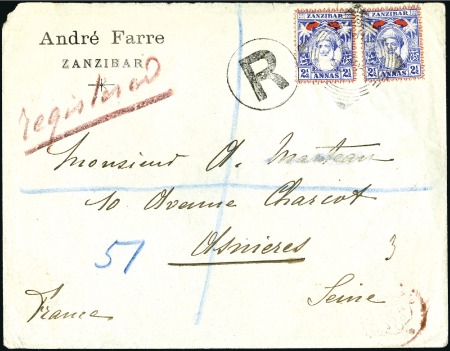 André Farre
ZANZIBAR
registered
R
ZANZIBAR
2½ 2½
ANNAS
ZANZIBAR
2½ 2½
ANNAS
Monsieur A. Manteau
10 Avenue Chariot
Asnieres
51
3
Seine
France